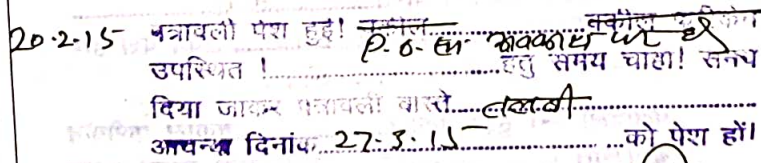 20.2.15 पत्रावली पेश हुई! वकील.......... वकील
P.O. सा. अवकाश पर है
उपस्थित !...............................हेतु समय चाहा! समय
दिया जाकर पत्रावली वास्ते....तलबी..........................
आयन्दा दिनांक...27-3-15.............को पेश हों।